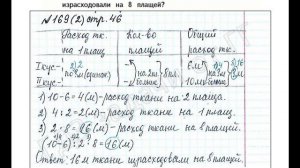 израсходовали на 8 плащей?
№169(2) стр. 46
Расход тк. на 1 плащ. Кол-во плащей Общий расход тк.
I кус.- по ?м (один.) 6м
II кус.- на 2 пл. больше 8пл. 10м
1) 10-6=4(м)-расход ткани на 2 плаща.
2) 4:2=2(м)-расход ткани на 1 плащ.
3) 2·8=16(м)-расход ткани на 8 плащей.
(10-6):2·8=16(м)
Ответ: 16м ткани израсходовали на 8 плащей.